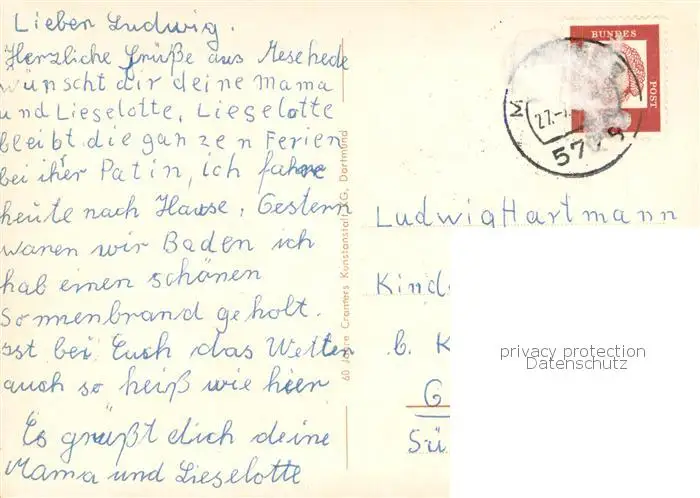 Lieber Ludwig.
Herzliche Grüße aus Meschede
wünscht dir deine Mama
und Lieselotte, Lieselotte
bleibt die ganzen Ferien
bei ihrer Patin, ich fahre
heute nach Hause, Gestern
waren wir Baden ich
hab einen schönen
Sonnenbrand geholt.
ist bei Euch das Wetter
auch so heiß wie hier
Es grüßt dich deine
Mama und Lieselotte
60 Jahre Cramers Kunstanstalt KG, Dortmund
BUNDES
POST
M
27.-
57
Ludwig Hartmann
Kind
b. K
G
Sü
privacy protection
Datenschutz